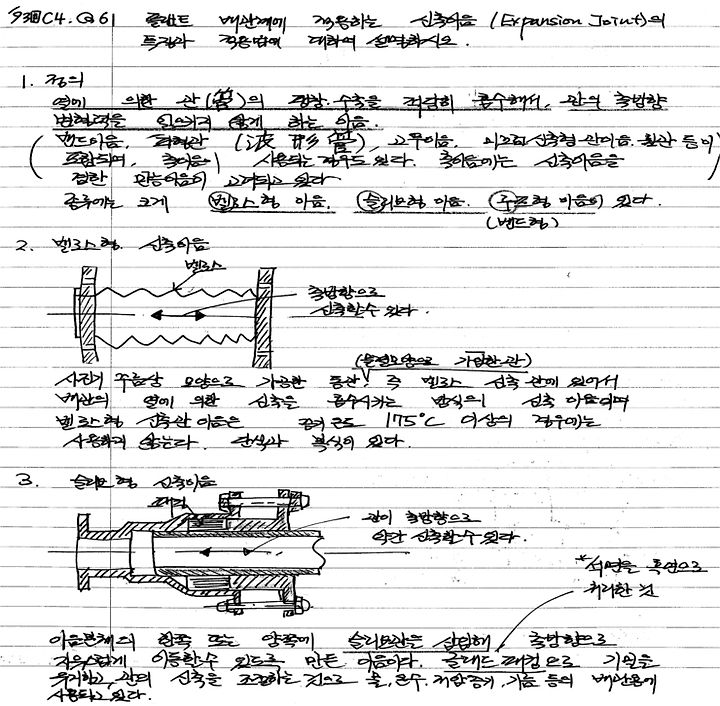 93회 C4. Q6) 플랜트 배관계에 적용하는 신축이음 (Expansion Joint)의
특징과 적용방법에 대하여 설명하시오.
1. 정의
열에 의한 관(管)의 팽창·수축을 적절히 흡수해서, 관의 축방향
변형력을 일으키지 않게 하는 이음.
(밴드이음, 파형관 (波形管), 고무이음, 미끄럼신축형 관이음, 휨관 등이
포함되며, 축이음이 사용되는 경우도 있다. 축이음에는 신축이음을
겸한 만능이음이 고려되고 있다)
종류에는 크게 벨로스형 이음, 슬리브형 이음, 루프형 이음이 있다.
(밴드형)
2. 벨로스형 신축이음
벨로스
축방향으로
신축할수 있다.
(물결모양으로 가공한 관)
사진기 주름상 모양으로 가공한 동관, 즉 벨로스 신축관에 있어서
배관의 열에 의한 신축을 흡수시키는 방식의 신축 이음이며
벨로스형 신축관 이음은 증기 온도 175°C 이상의 경우에는
사용하지 않는다. 단식과 복식이 있다.
3. 슬리브형 신축이음
패킹
관이 축방향으로
약간 신축할수 있다.
*석면을 흑연으로
처리한 것
이음본체의 한쪽 또는 양쪽에 슬리브관을 삽입해 축방향으로
자유스럽게 이동할수 있도록 만든 이음이다. 글랜드 패킹으로 기밀을
유지하고, 관의 신축을 조절하는 것으로 물, 온수, 저압증기, 기름 등의 배관용에
사용되고 있다.